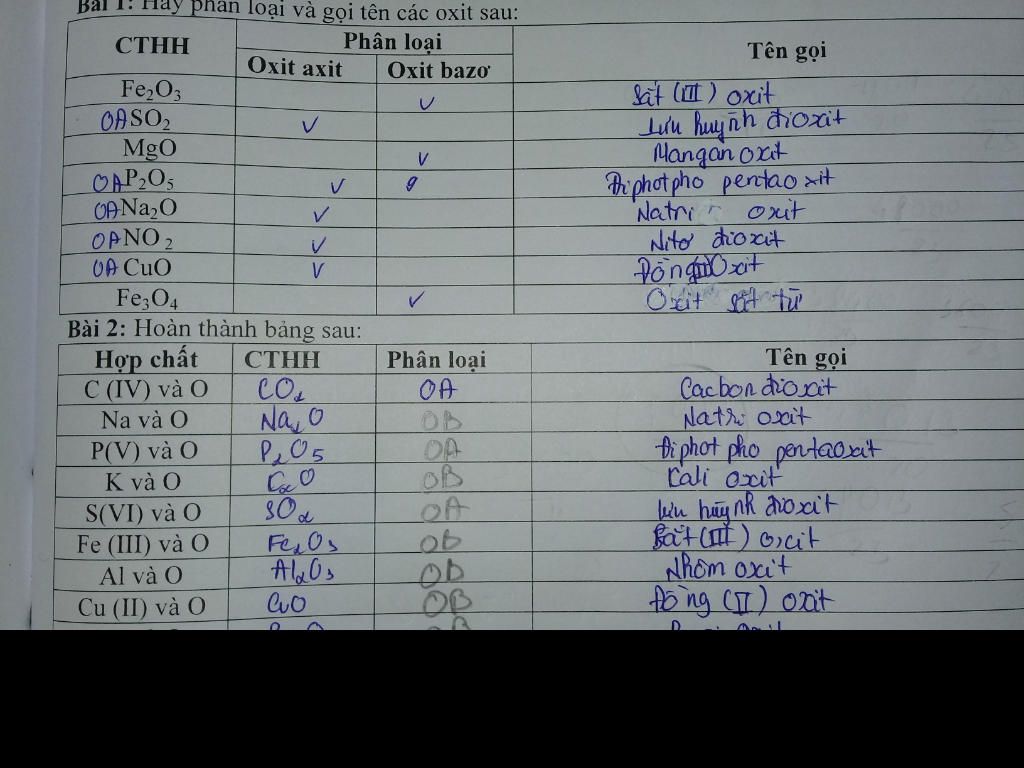 Bài 1: Hãy phân loại và gọi tên các oxit sau:
CTHH Phân loại Tên gọi
Oxit axit Oxit bazơ
Fe₂O₃ ✓ Sắt (III) oxit
OA SO₂ ✓ Lưu huỳnh đioxit
MgO ✓ Mangan oxit
OA P₂O₅ ✓ Điphotpho pentaoxit
OA Na₂O ✓ Natri oxit
OA NO₂ ✓ Nitơ đioxit
OA CuO ✓ Đồng(II) Oxit
Fe₃O₄ ✓ Oxit sắt từ
Bài 2: Hoàn thành bảng sau:
Hợp chất CTHH Phân loại Tên gọi
C (IV) và O CO₂ OA Cacbon đioxit
Na và O Na₂O OB Natri oxit
P(V) và O P₂O₅ OA Điphotpho pentaoxit
K và O CaO OB Cali oxit
S(VI) và O SO₂ OA Lưu huỳnh đioxit
Fe (III) và O Fe₂O₃ OB Sắt (III) oxit
Al và O Al₂O₃ OB Nhôm oxit
Cu (II) và O CuO OB Đồng (II) oxit